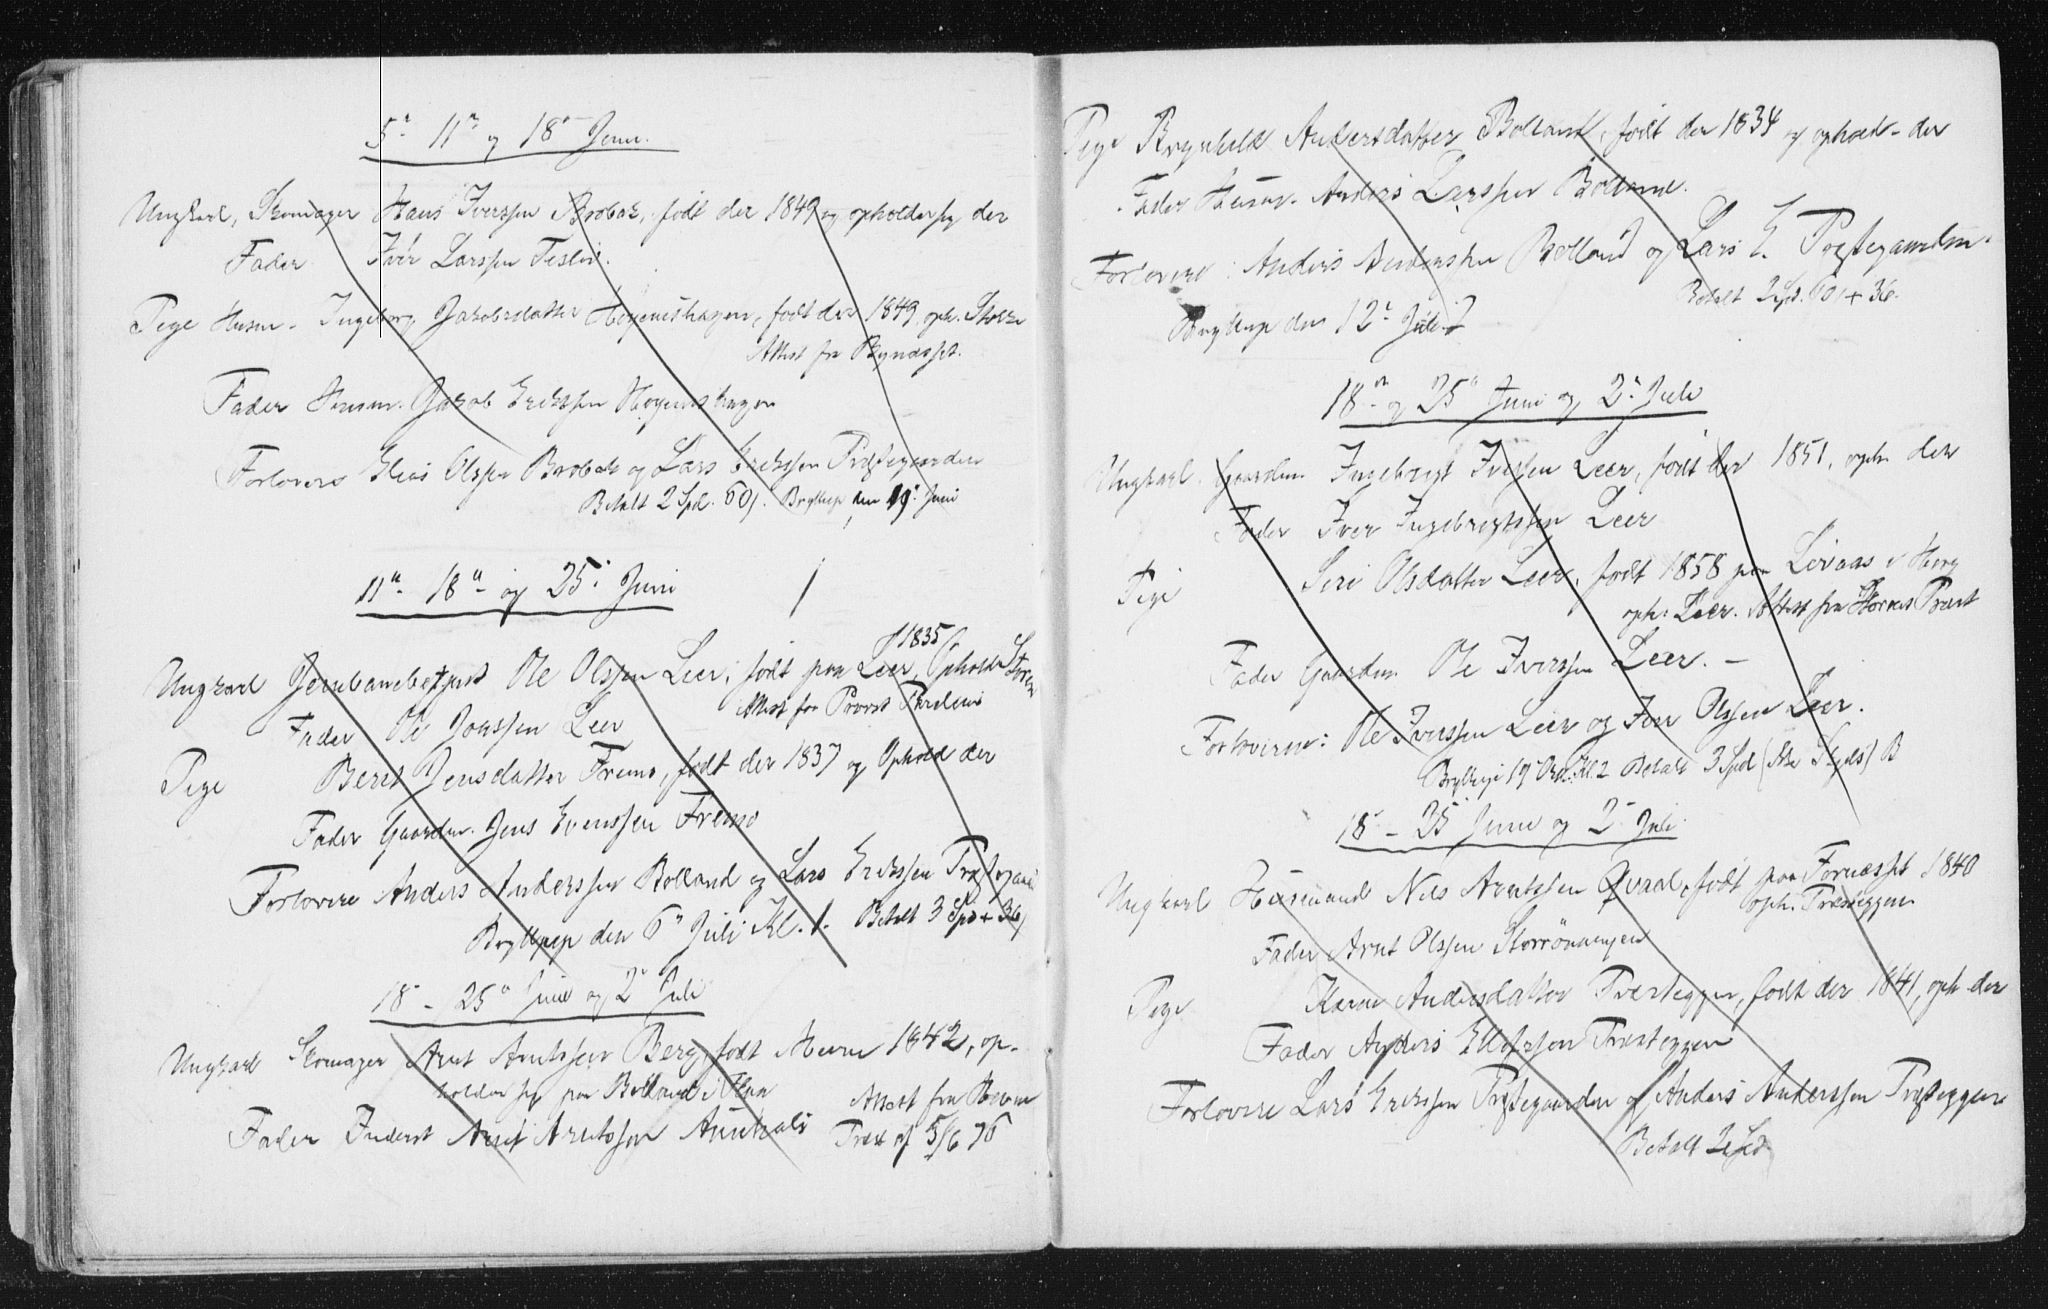 5te 11te og 18de Juni.
Ungkarl, Skomager Hans Iverssen Brobak, født der 1849 og opholder sig der
Fader Iver Larssen Teslie.
Pige Husm. Ingeborg Jakobsdatter Høyemshagen, født der 1849, oph.
Attest fra Bynæsset.
Fader Husm. Jakob Erikssen Høyemshagen
Forlovere Elias Olssen Brobak og Lars Erikssen Præstegaarden
Betalt 2 Spd. 60 s. Bryllup den 19de Juni
11te 18de og 25de Juni
1835
Ungkarl Jernbanebetjent Ole Olssen Leer, født paa Leer, Opholder Støren
Attest fra Provst
Fader Ole Jonssen Leer
Pige Beret Jensdatter Fremo, født der 1837 og Ophold der
Fader Gaardm. Jens Evenssen Fremo
Forlovere Anders Anderssen Bolland og Lars Erikssen Præstegaard
Bryllup den 6te Juli Kl. 1. Betalt 3 Spd + 36 s
18de 25de Juni og 2de Juli
Ungkarl Skomager Arnt Arntssen Berg, født 1842, op-
holder sig paa Bolland i Flaa
Attest fra
Fader Inderst Arnt Arntssen
Præst af 5/6 76
Pige Brynhild Andersdatter Bolland, født der 1834 og ophold der
Fader Husm. Anders Larssen Bolland.
Forlovere: Anders Anderssen Bolland og Lars E. Præstegaarden.
Betalt 2 Spd. 60 s + 36.
Bryllup den 12te Juli
18de og 25de Juni og 2de Juli
Ungkarl Gaardm. Ingebrigt Iverssen Leer, født der 1851, oph. der
Fader Iver Ingebrigtssen Leer
Pige Siri Olsdatter Leer, født 1858 paa Løvaas i
oph. Leer. Attest fra Præst
Fader Gaardm. Ole Iverssen Leer. –
Forlovere: Ole Iverssen Leer og Iver Olssen Leer.
Bryllup 19 Kl. 2 Betalt 3 Spd
18de – 25de Juni og 2de Juli
Ungkarl Husmand Nils Arntssen Qvaal, født paa 1840
oph. Præsteggen
Fader Arnt Olssen Storrønningen
Pige Karen Andersdatter Præsteggen, født der 1841, oph der
Fader Anders Ellefssen Præsteggen
Forlovere Lars Erikssen Præstegaarden og Anders Anderssen Præsteggen
Betalt 2 Spd